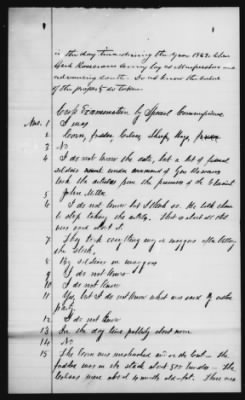 in the day time during the year 1862 when
Genl Rosecrans army lay at Murfreesboro and
advancing south. Do not know the value
of the property so taken
Cross Examination by Special Commissioner
Ans. 1 I was
2 Corn, fodder, Calves, Sheep, Hogs,
3 No
4 I do not know the date, but a lot of federal
soldiers under command of Gen Rosecrans
took the articles from the premises of the Claimant
5 John Miller
6 I do not know but I think so. He told them
to stop taking the cattle. This is about all that
was said about it.
7 They took everything in wagons the cattle
8 By soldiers in wagons
9 I do not know
10 I do not know
11 Yes, but I do not know what was said by either
party
12 I do not know
13 In the day time publicly about noon
14 No
15 The corn was unshucked and in the - the
fodder was in the stack about 500 bundles - The
Calves were about 4 months old - fat. There was